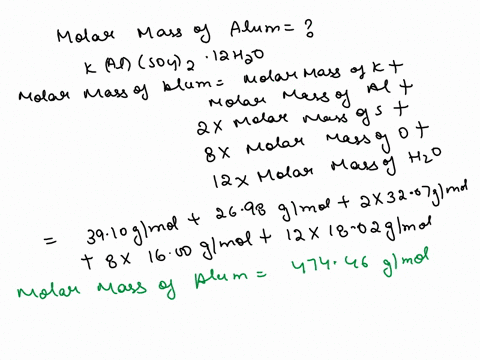 Molar Mass of Alum = ?
K(Al)(SO4)2 · 12H2O
Molar Mass of Alum = Molar Mass of K +
Molar Mass of Al +
2 x Molar Mass of S +
8 x Molar Mass of O +
12 x Molar Mass of H2O
= 39.10 g/mol + 26.98 g/mol + 2 x 32.07 g/mol
+ 8 x 16.00 g/mol + 12 x 18.02 g/mol
Molar Mass of Alum = 474.46 g/mol